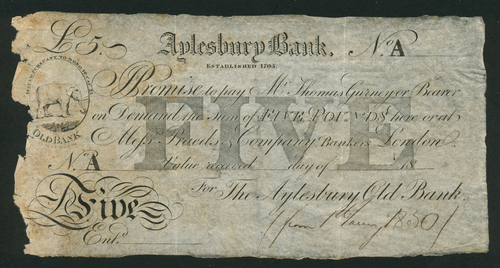 £5. Aylesbury Bank. No. A
ESTABLISHED 1795.
I Promise to pay Mr. Thomas Gurney or Bearer
on Demand the Sum of FIVE POUNDS here or at
Messrs. Praeds & Company Bankers London.
FIVE
OLD BANK
No. A Value received day of 18
For The Aylesbury Old Bank.
Five
Entd.